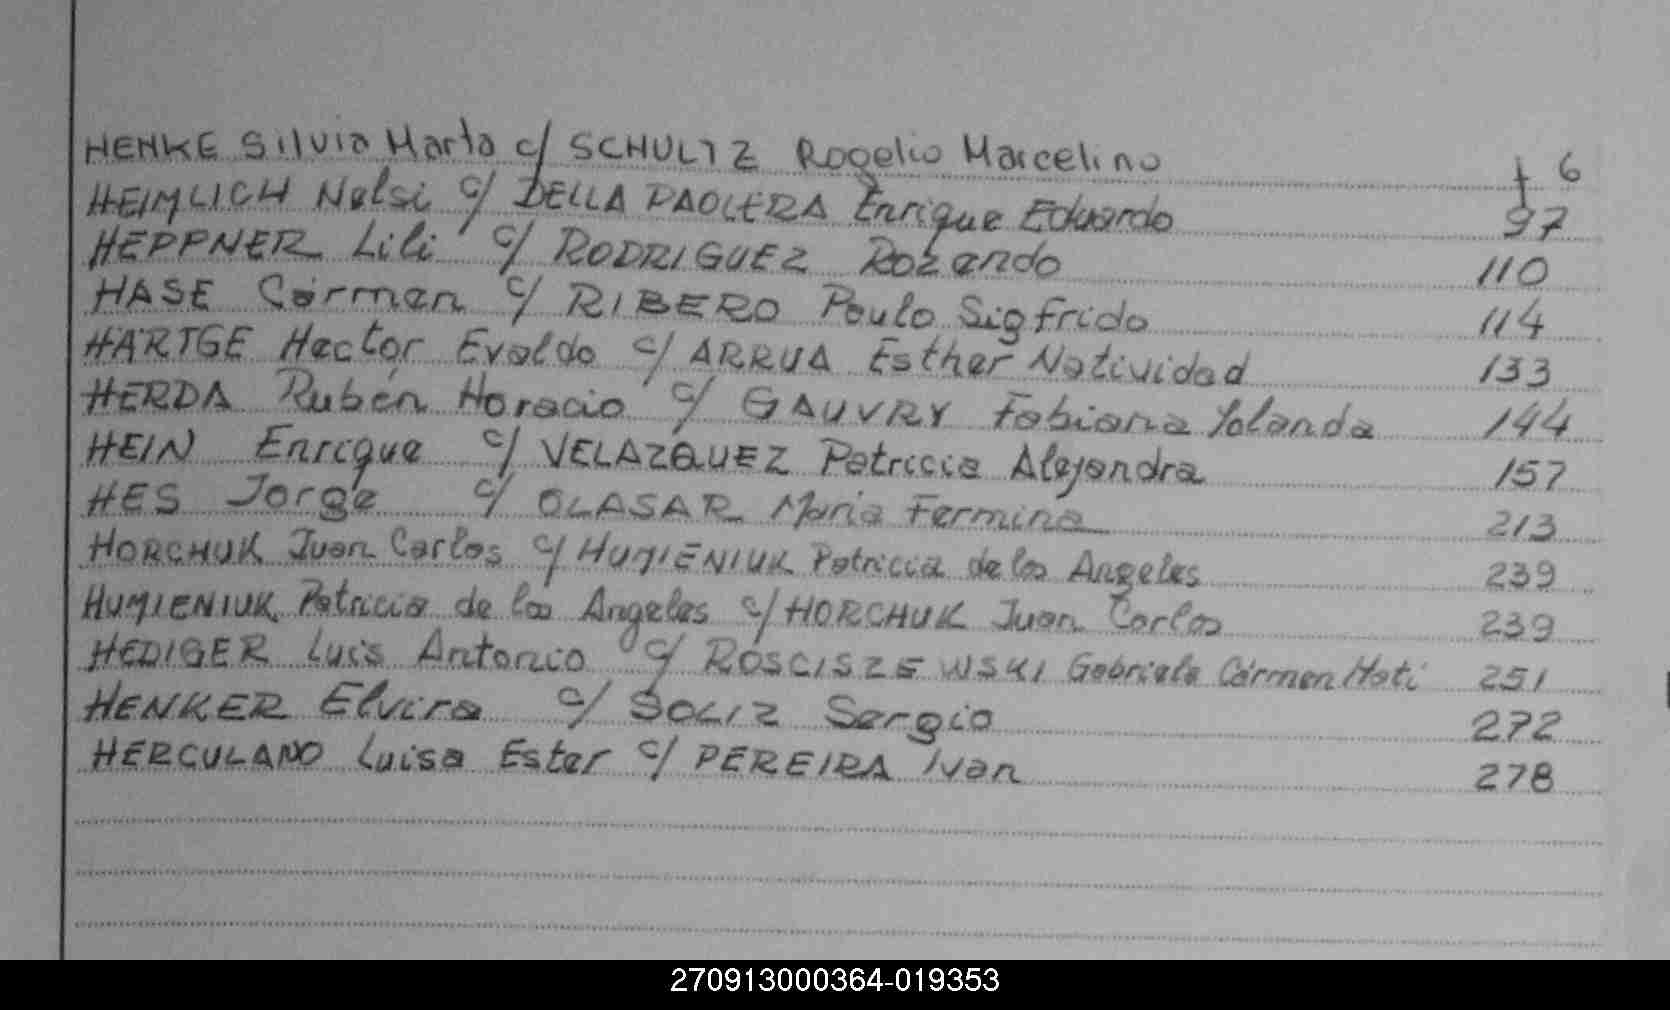 HENKE Silvia Marta c/ SCHULTZ Rogelio Marcelino f 6
HEIMLICH Nelsi c/ DELLA PAOLERA Enrique Eduardo 97
HEPPNER Lili c/ RODRIGUEZ Rozendo 110
HASE Cármen c/ RIBERO Paulo Sigfrido 114
HARTGE Hector Evaldo c/ ARRUA Esther Natividad 133
HERDA Rubén Horacio c/ GAUVRY Fabiana Yolanda 144
HEIN Enrique c/ VELAZQUEZ Patricia Alejandra 157
HES Jorge c/ OLASAR Maria Fermina 213
HORCHUK Juan Carlos c/ HUMIENIUK Patricia de los Angeles 239
HUMIENIUK Patricia de los Angeles c/ HORCHUK Juan Carlos 239
HEDIGER Luis Antonio c/ ROSCISZEWSKI Gabriela Cármen Mati 251
HENKER Elvira c/ SOLIZ Sergio 272
HERCULANO Luisa Ester c/ PEREIRA Ivan 278
270913000364-019353